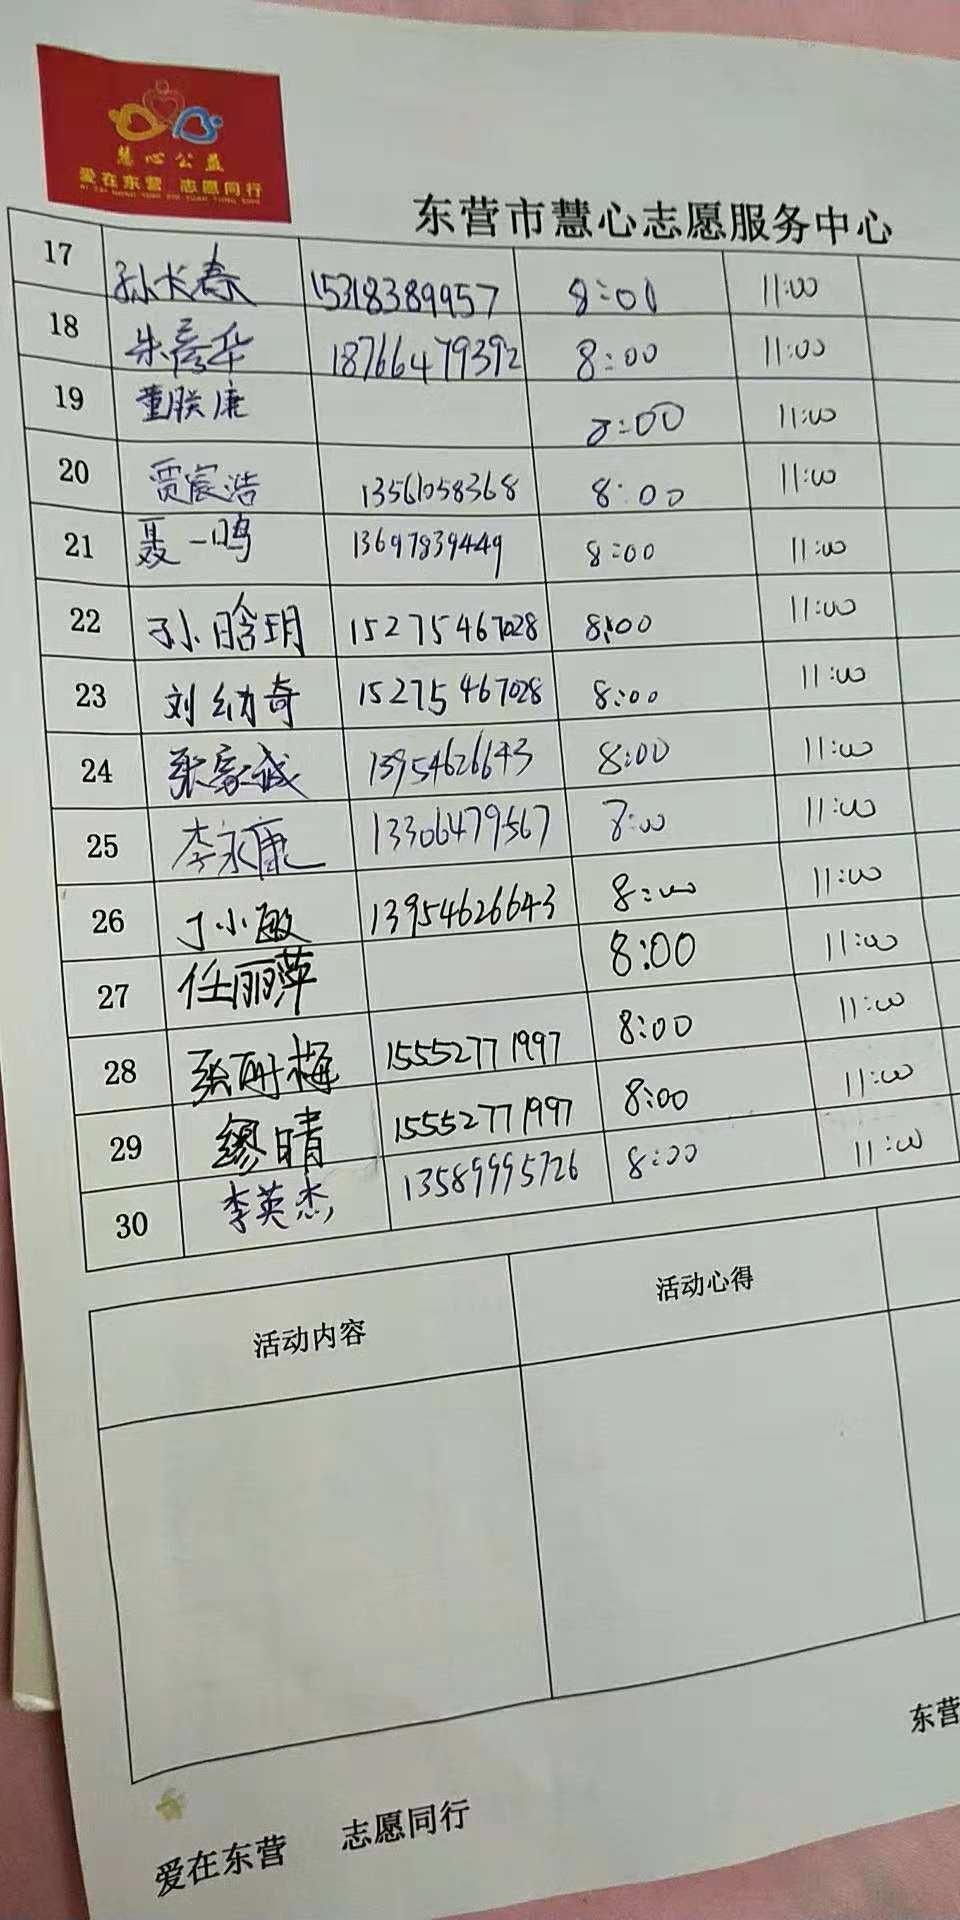 慧心公益
爱在东营 志愿同行
东营市慧心志愿服务中心
17 孙长春 15318389957 8:01 11:00
18 朱彦华 18766479392 8:00 11:00
19 董朕康 8:00 11:00
20 贾宸浩 13561058368 8:00 11:00
21 聂一鸣 13697839449 8:00 11:00
22 孙晗玥 15275467028 8:00 11:00
23 刘纳奇 15275467028 8:00 11:00
24 张家诚 13954626643 8:00 11:00
25 李永康 13306479567 8:00 11:00
26 丁小敏 13954626643 8:00 11:00
27 任丽萍 8:00 11:00
28 张耐梅 15552771997 8:00 11:00
29 缪晴 15552771997 8:00 11:00
30 李英杰 13589995726 8:00 11:00
活动内容 活动心得
东营
爱在东营 志愿同行